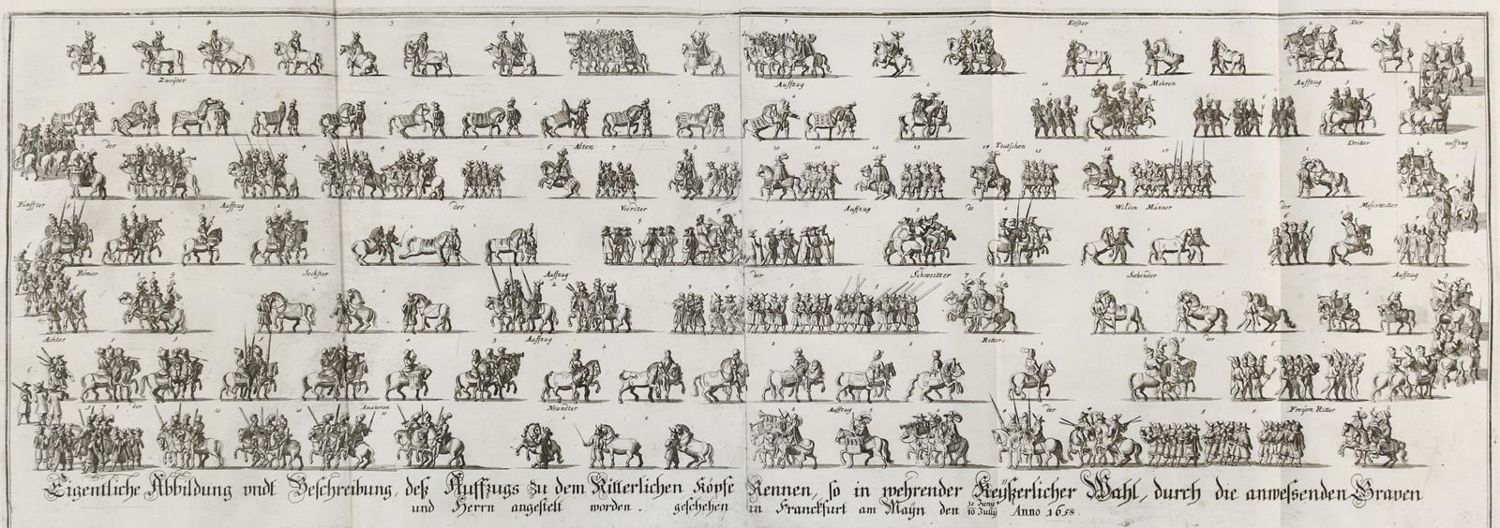 Erster
Der
Zweyter
Auffzug
Mohren
Auffzug
der
Alten
Teutschen
Dritter
auffzug
Fünffter
Auffzug
der
Vierdter
Auffzug
de
Wilden Männer
der
Moscowitter
Römer
Sechster
Auffzug
der
Schweitzer
Siebender
Auffzug
Achter
Auffzug
Ritter
der
der
Amazonen
Neundter
Auffzug
der
Freyen Ritter
Eigentliche Abbildung vndt Beschreibung, deß Auffzugs zu dem Ritterlichen Kopfe Rennen, so in wehrender Keyßerlicher Wahl, durch die anwessenden Graven
und Herrn angestelt worden. geschehen in Franckfurt am Mayn den 30 Juny 10 July Anno 1658.